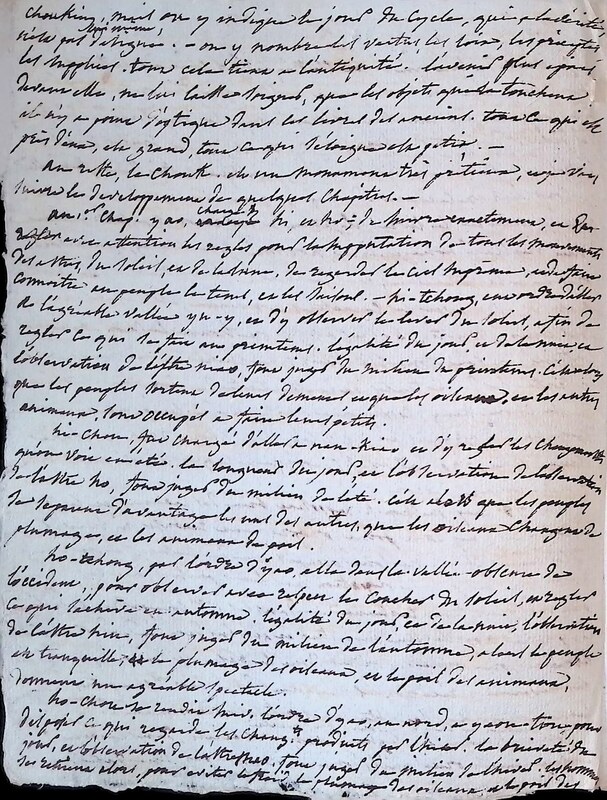 chouking, mais on y indique le jour du Cycle, qui
pas . - on y nombre les vertus les loix, les préceptes
les supplices. tout cela tient a l'antiquité. l'avenir plus
devant elle, ne lui laisse que les objets qui la touchent
il n'y a point d'optique dans les livres des anciens. tout ce qui est
près d'eux, est grand, tout ce qui s'éloigne est petit. -
au reste, le Chouk. est un monument très prétieux, et je vais
suivre le développement de quelques chapitres. -
au 1er Chap. yao, charge hi, et ho, de suivre exactement, et
avec attention les regles pour la supputation de tous les mouvements
des astres, du soleil, et de la lune, de regarder le ciel suprême, et de faire
connoitre au peuple le tems, et les saisons. - hi-tchong, eut ordre d'aller
a l'agréable vallée yu-y, et d'y observer le lever du soleil, afin de
regler ce qui se fait au printems. l'égalité du jour et de la nuit, et
l'observation de l'astre niao, font juger du milieu du printems. c'est alors
que les peuples sortent de leurs demeures et que les oiseaux, et les autres
animaux, sont occupés a faire leurs petits.
hi-chou, fut chargé d'aller a nan-kiao et d'y regler les changements
qu'on voit en été. la longueur du jour, et l'observation
de l'astre ho, font juger du milieu de l'été. c'est alors que les peuples
se separent d'avantage les uns des autres, que les oiseaux changent de
plumage, et les animaux de poil.
ho-tchong, par l'ordre d'yao, alla dans la vallée obscure de
l'occident, pour observer avec respect le coucher du soleil, et regler
ce qui s'acheve en automne, l'égalité du jour et de la nuit, l'observation
de l'astre hiu, font juger du milieu de l'automne, alors le peuple
est tranquille, le plumage des oiseaux, et le poil des animaux,
donnent un agréable spectacle.
ho-chou se rendit suiv. l'ordre d'yao, au nord, a yeou-tou pour
disposer ce qui regarde les chang.ts produits par l'hiver. la brieveté du
jour, et l'observation de l'astre mao. font juger du milieu de l'hiver. les hommes
se retirent alors, pour eviter le froid, le plumage des oiseaux, et le poil des